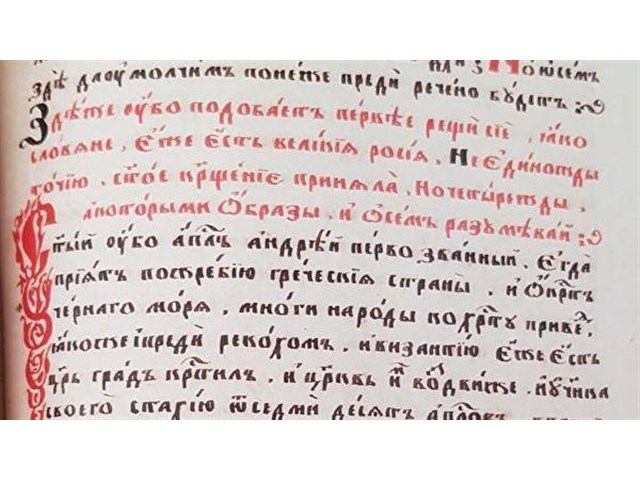 здѣ да оумолчимъ понеже преди речено будетъ :
Здѣже оубо подобаетъ первѣе рещи сїе, ꙗко
словѧне, еже есть великїѧ росїѧ, не единожды
точїю, ст҃ое кр҃щенїе принѧла, но четырежды,
а которыми образы, и ѡ семъ разумѣвай :
С҃тый оубо ап҃лъ андрѣй первозванный, егда
прїѧтъ по жребїю греческїѧ страны, и ѡкр҃тъ
чернаго морѧ, многи народы ко хр҃ту приве,
ꙗкоже и преди рекохомъ, и византїю еже есть
ц҃рь градъ кр҃тилъ, и ц҃рквь воздвиже, и оученика
своего стахїю ѿ седмидесѧтъ ап҃лѡвъ